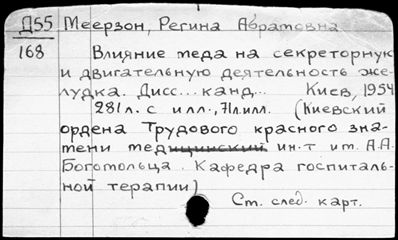 Д55 Меерзон, Регина Абрамовна
168 Влияние меда на секреторную
и двигательную деятельность же-
лудка. Дисс... канд... Киев, 1954
281л. с илл., 71л.илл. (Киевский
ордена Трудового красного зна-
мени медицинский ин-т им. А.А.
Богомольца. Кафедра госпиталь-
ной терапии)
См. след. карт.